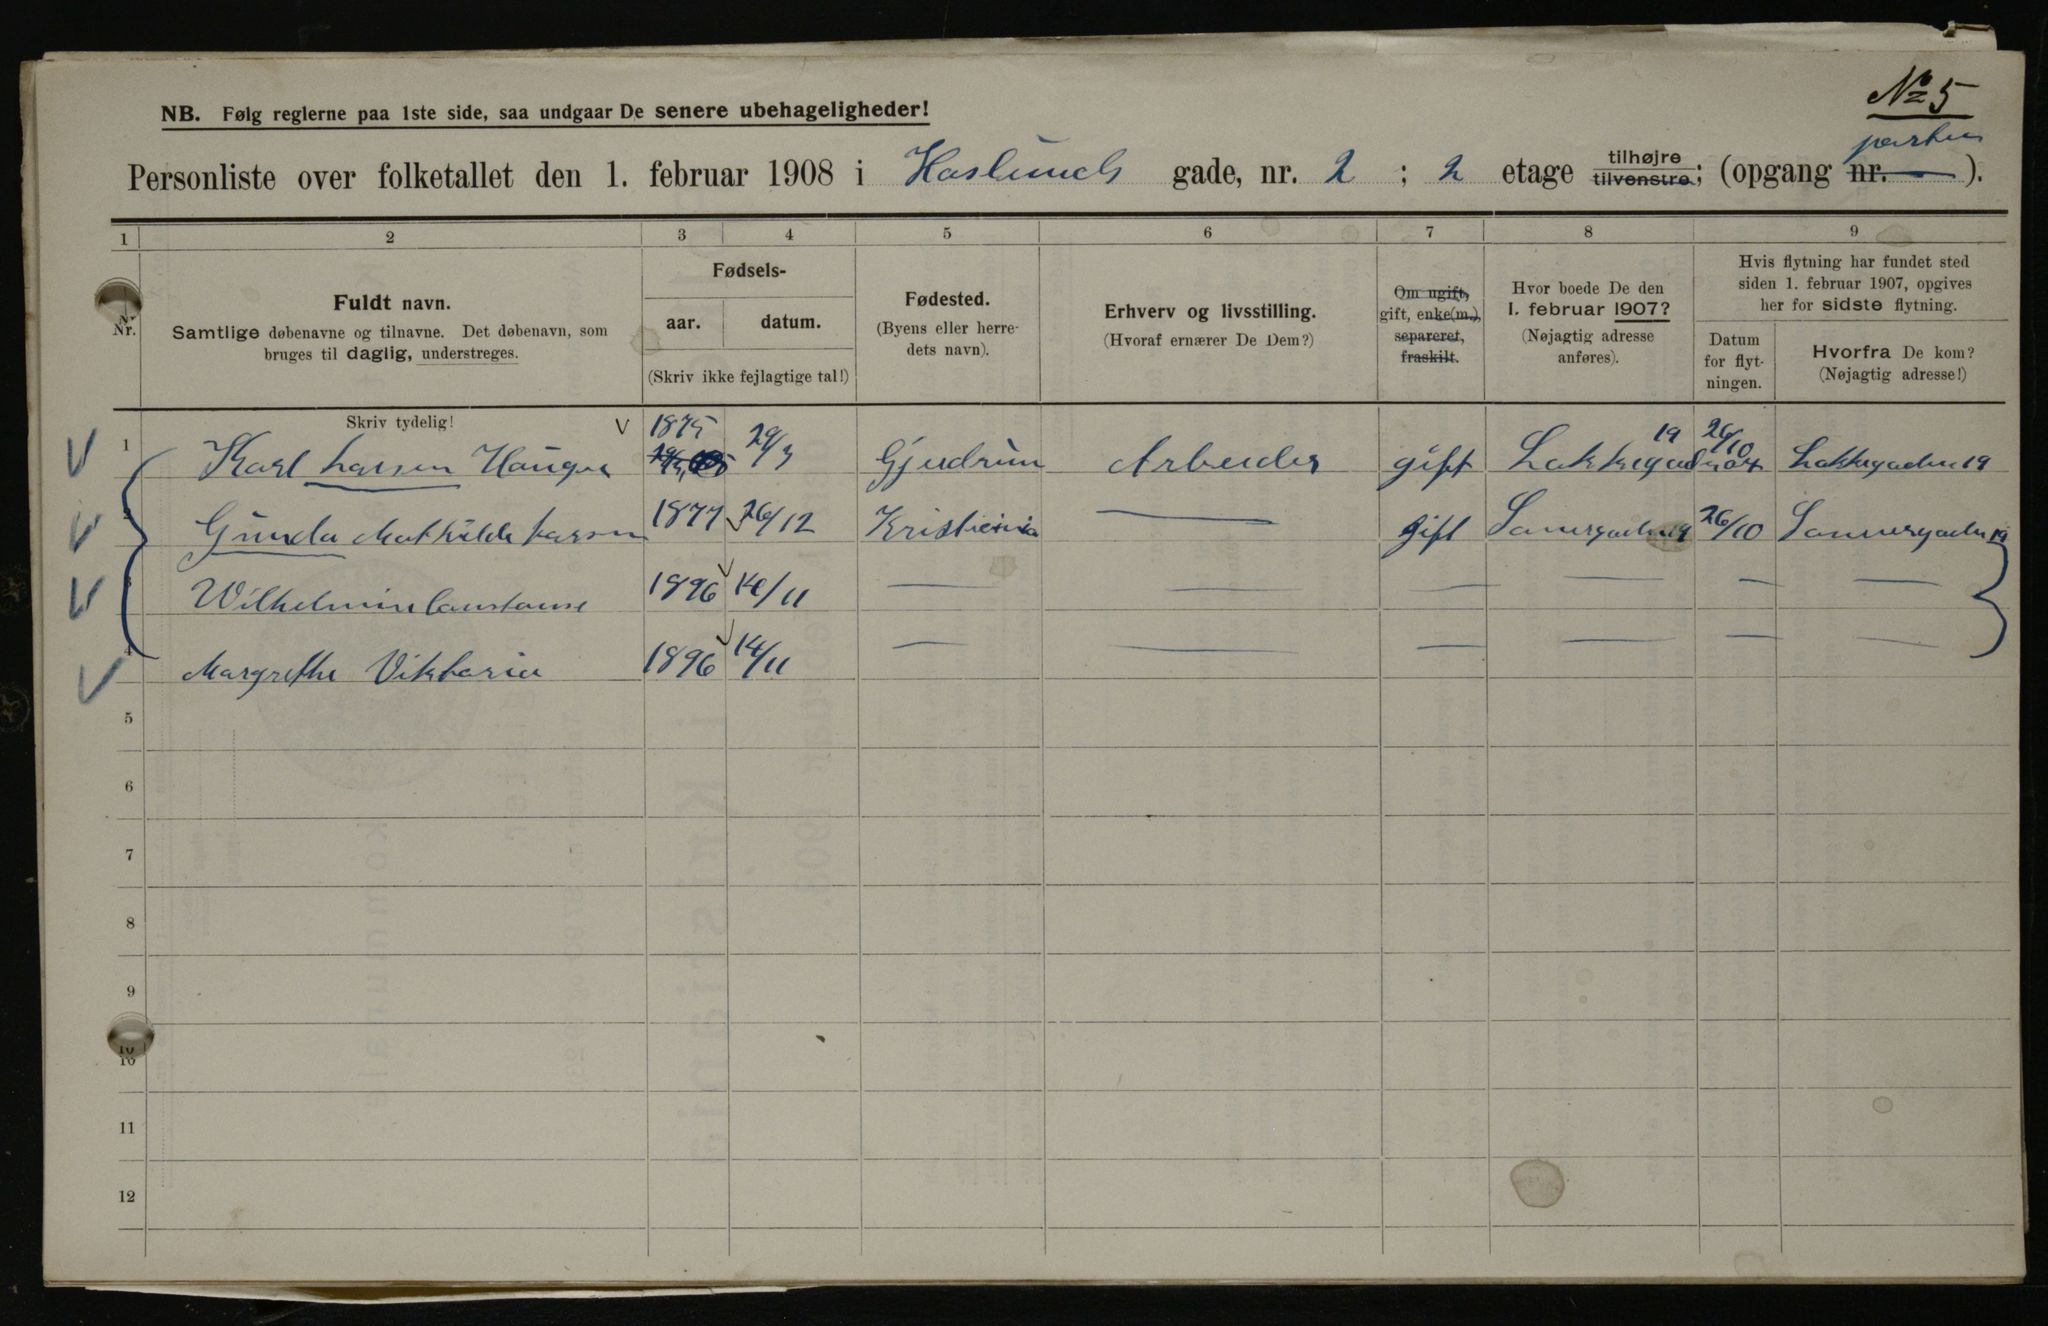 № 5
NB. Følg reglerne paa 1ste side, saa undgaar De senere ubehageligheder!
Personliste over folketallet den 1. februar 1908 i Haslunds gade, nr. 2 ; 2 etage tilhøjre tilvenstre; (opgang nr. ).
1 2 3 4 5 6 7 8 9
Nr.
Fuldt navn.
Samtlige døbenavne og tilnavne. Det døbenavn, som
bruges til daglig, understreges.
Fødsels-
aar. datum.
(Skriv ikke fejlagtige tal!)
Fødested.
(Byens eller herre-
dets navn).
Erhverv og livsstilling.
(Hvoraf ernærer De Dem?)
Om ugift,
gift, enke(m.),
separeret,
fraskilt.
Hvor boede De den
1. februar 1907?
(Nøjagtig adresse
anføres).
Hvis flytning har fundet sted
siden 1. februar 1907, opgives
her for sidste flytning.
Datum
for flyt-
ningen.
Hvorfra De kom?
(Nøjagtig adresse!)
Skriv tydelig!
1 Karl Larsen Haugen 1875 29/3 Gjerdrum Arbeider gift Lakkegad 19 26/10 Lakkegaden 19
2 Gunda Mathilde Larsen 1877 26/12 Kristiania — gift Sannergaden 19 26/10 Sannergaden 19
3 Wilhelmine Constanse 1896 14/11 — — — — — —
4 Margrethe Viktoria 1896 14/11 — — — — — —
5
6
7
8
9
10
10
11
12